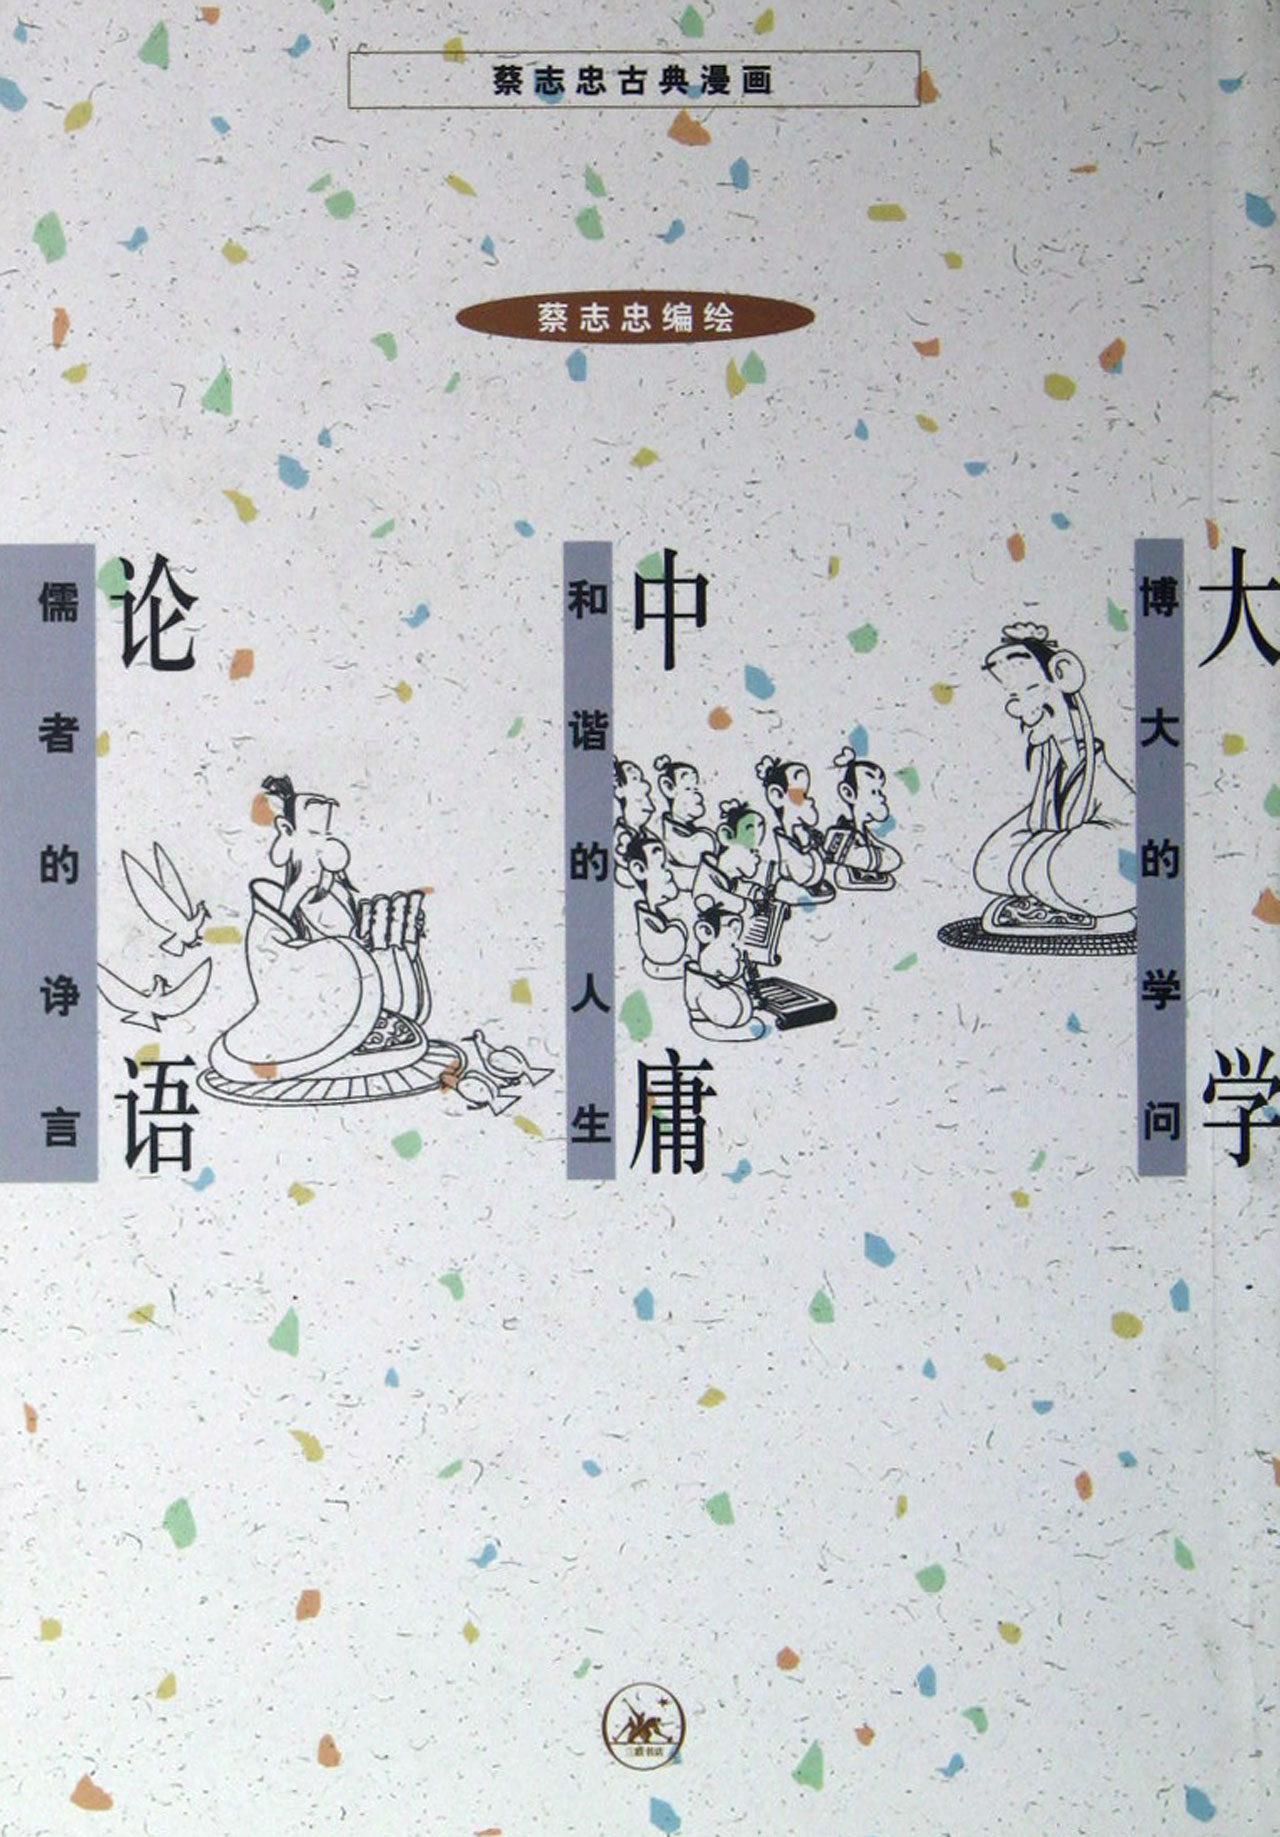 蔡志忠古典漫画
蔡志忠编绘
大学
博大的学问
中庸
和谐的人生
论语
儒者的诤言
三联书店